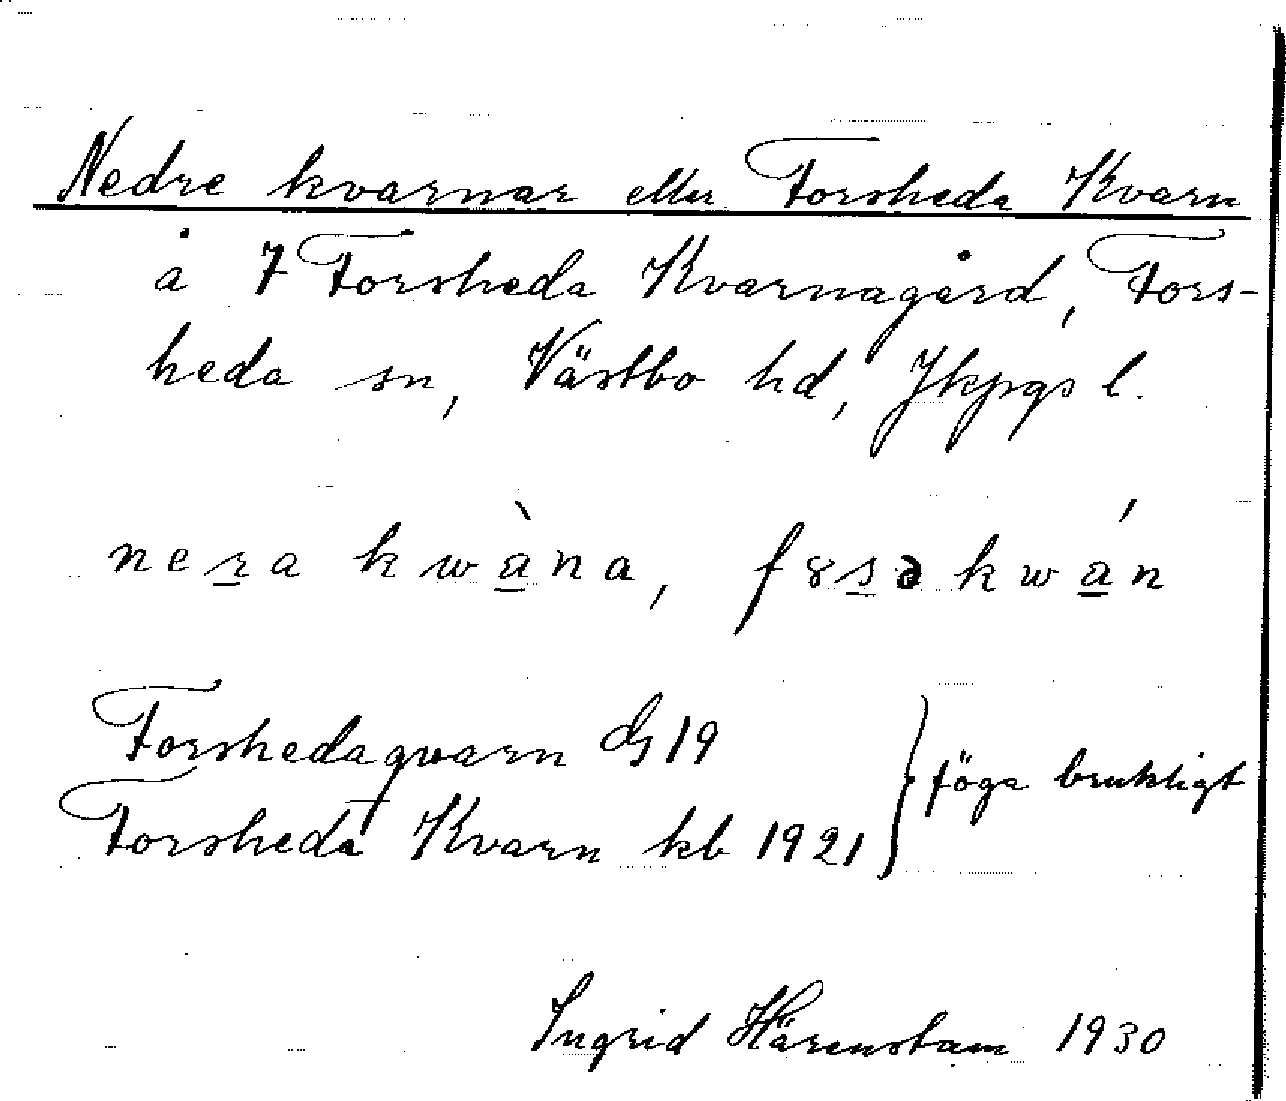 Nedre kvarnar eller Forsheda Kvarn
å 7 Forsheda Kvarnagård, Fors-
heda sn, Västbo hd, Jkpgs l.
nera kwàna, f8səkwán
Forshedaqvarn GS 19
Forsheda Kvarn kb 1921 } föga brukligt
Ingrid Härenstam 1930